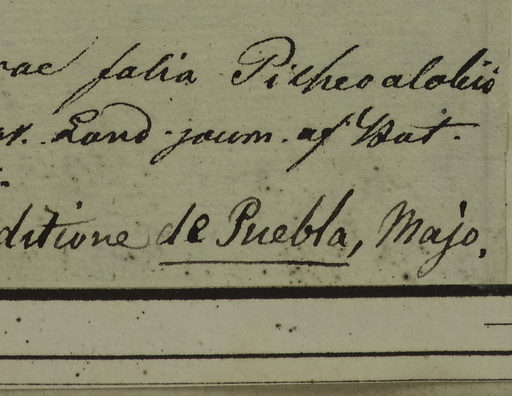 rae folia Pitheoalobii
ar. Lond. journ. of Bot.
ditione de Puebla, Majo,